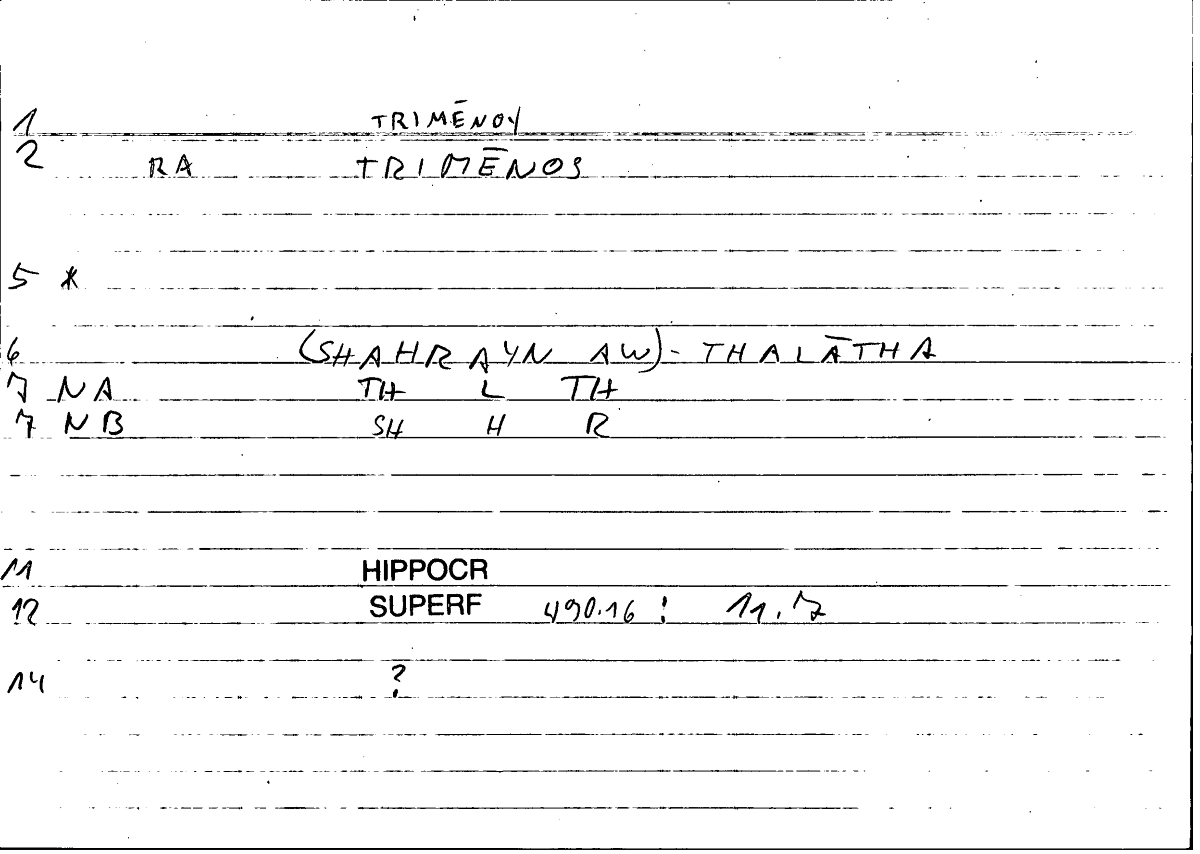 1 TRIMĒNOY
2 RA TRIMĒNOS
5 *
6 (SHAHRAYN AW)- THALĀTHA
7 NA TH L TH
7 NB SH H R
11 HIPPOCR
12 SUPERF 490.16 ! 11.7
14 ?